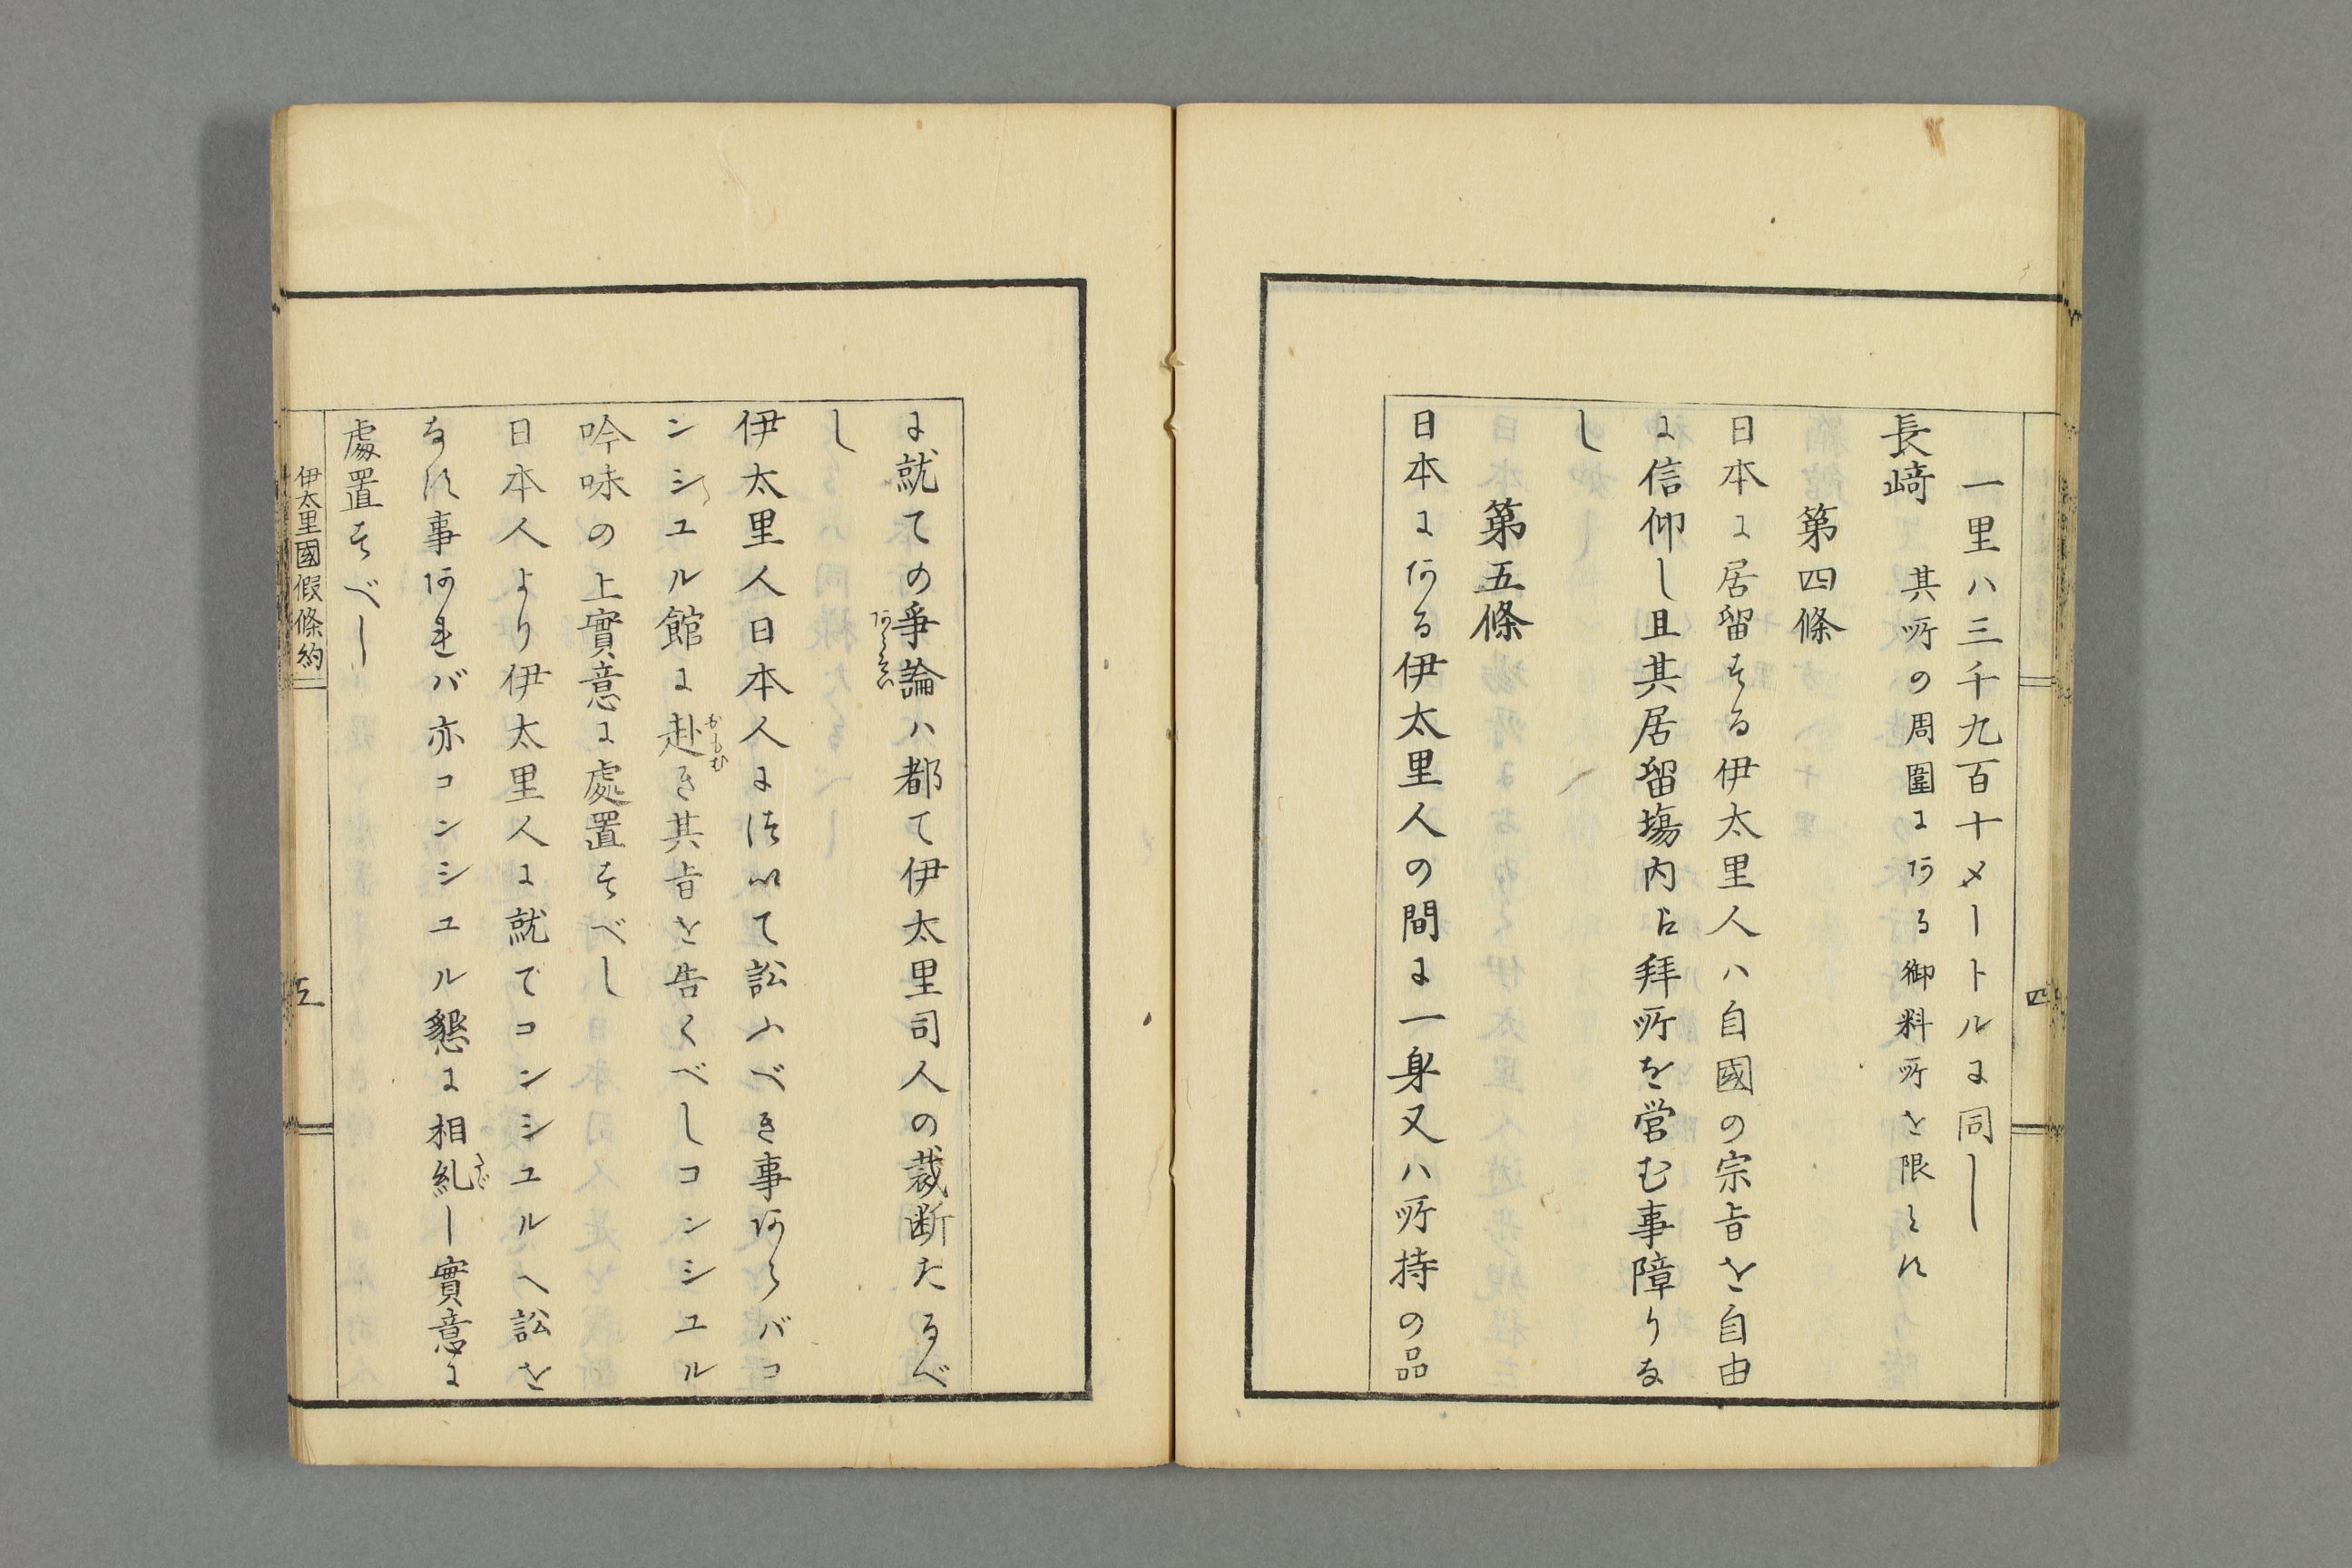 一里ハ三千九百十メートルに同し
長﨑　其所の周圍にある御料所を限とす
第四條
日本に居留する伊太里人ハ自國の宗旨を自由
に信仰し且其居留塲内に拜所を営む事障りな
し
第五條
日本にある伊太里人の間に一身又ハ所持の品
四
に就ての爭論ハ都て伊太里司人の裁断たるべ
あらそい
し
伊太里人日本人に対して訟ふべき事あらバコ
ンシユル館に赴き其旨を告くべしコンシユル
おもむ
吟味の上實意に處置すべし
日本人より伊太里人に就てコンシユルへ訟を
なす事あれバ亦コンシユル懇に相糺し實意に
たゞ
處置すべし
伊太里國假條約
五